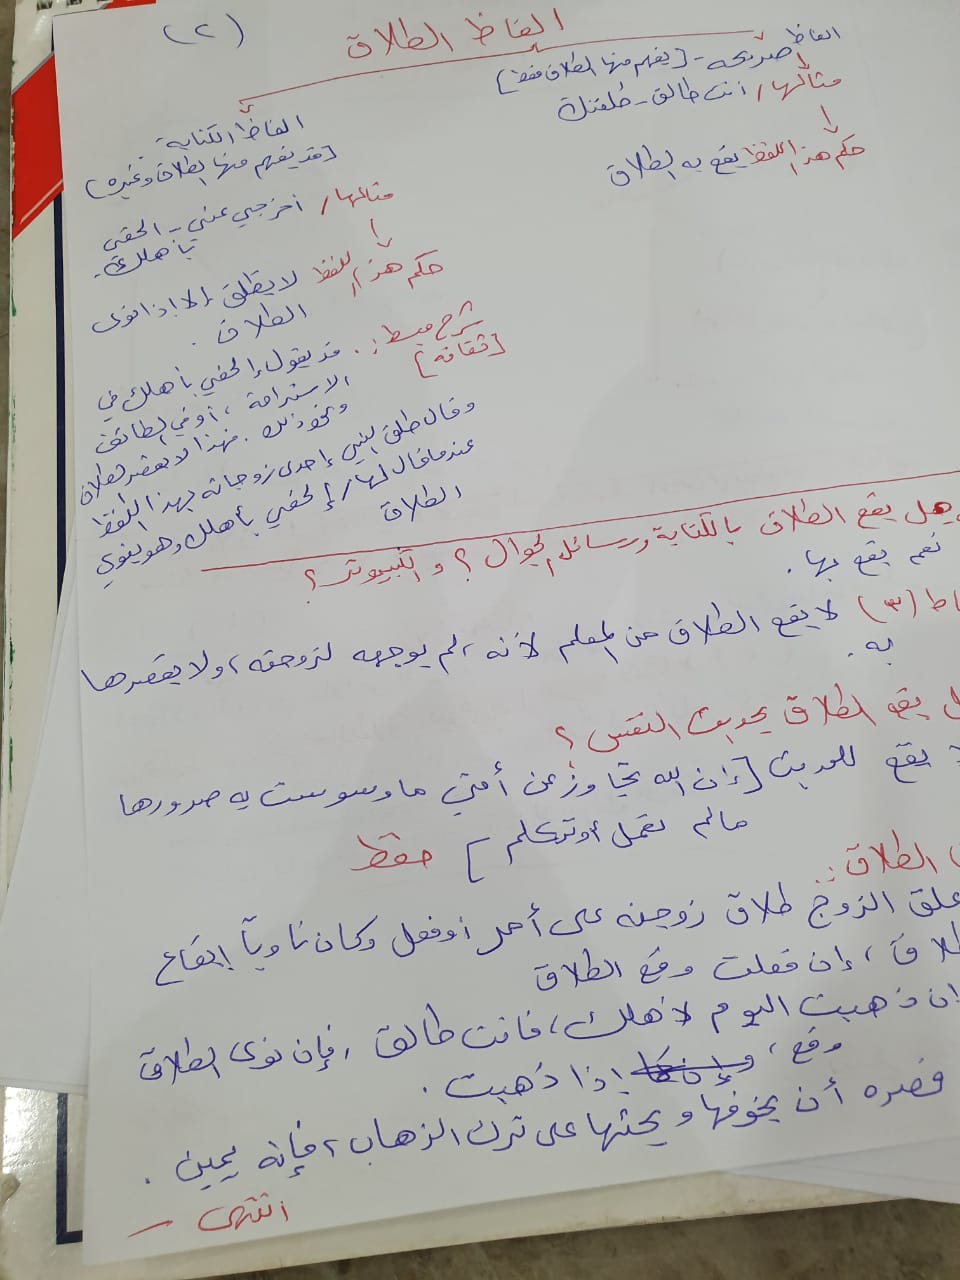 (٢)
الفاظ الطلاق
الفاظ صريحه - [يفهم منها الطلاق فقط]
مثالها/ أنت طالق - طلقتك
حكم هذا اللفظ يقع به الطلاق
الفاظ الكناية
[قد يفهم منها الطلاق وغيره]
مثالها/ أخرجي عني - الحقي
بأهلك -
حكم هذا اللفظ لا يطلق إلا اذا نوى
الطلاق .
شرح مبسط :. قد يقول إلحقي بأهلك في
[ثقافة]
الاستراحة ، أو في الطائف
ونحو ذلك . فهذا لا يقصد الطلاق
وقال طلق النبي إحدى زوجاته بهذا اللفظ
عندما قال لها/ إلحقي بأهلك وهو ينوي
الطلاق
هل يقع الطلاق بالكتابة ورسائل الجوال ؟ و الكمبيوتر ؟
نعم يقع بها .
(٣) لا يقع الطلاق من المعلم لأنه لم يوجهه لزوجته، ولا يقصدها
به .
يقع الطلاق بحديث النفس ؟
يقع للحديث [إن الله تجاوز عن أمتي ما وسوست به صدورها
مالم تعمل أو تتكلم ] حفظ
الطلاق :.
علق الزوج طلاق زوجته على أمر أو فعل وكان ناوياً إيقاع
، إن فعلت وقع الطلاق
ان ذهبت اليوم لأهلك ، فانت طالق ، فإن نوى الطلاق
وقع ، إذا ذهبت .
قصده أن يخوفها ويحثها على ترك الذهاب ، فإنه يمين .
انتهى -